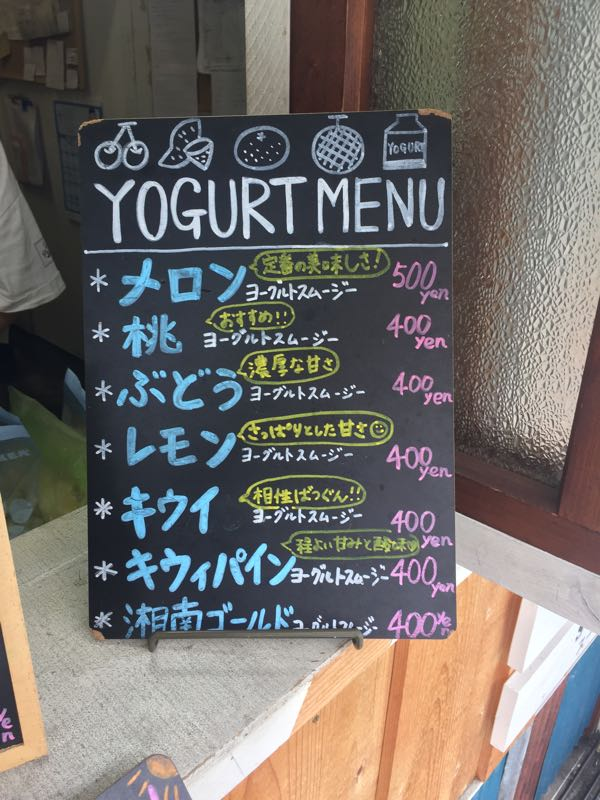 YOGURT
YOGURT MENU
定番の美味しさ!
* メロン ヨーグルトスムージー 500yen
おすすめ!!
* 桃 ヨーグルトスムージー 400yen
濃厚な甘さ
* ぶどう ヨーグルトスムージー 400yen
さっぱりとした甘さ☺
* レモン ヨーグルトスムージー 400yen
相性ばつぐん!!
* キウイ ヨーグルトスムージー 400yen
程よい甘みと酸味♡
* キウィパイン ヨーグルトスムージー 400yen
* 湘南ゴールド ヨーグルトスムージー 400yen
yen